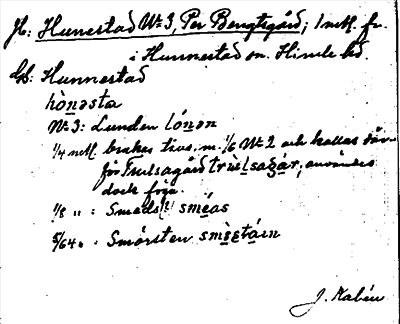 Jb: Hunestad No 3, Per Bengtsgård; 1 mtl. fr.
i Hunnestad sn. Himle hd.
Gb: Hunnestad
hònəsta
No 3: Lunden lónən
1/4 mtl. brukas tills. m. 1/6 No 2 och kallas där-
för Trulsagård trùlsagár, användes
dock föga.
1/8 " : Smeds sméas
5/64 " : Smörsten smèstáin
J. Kalén